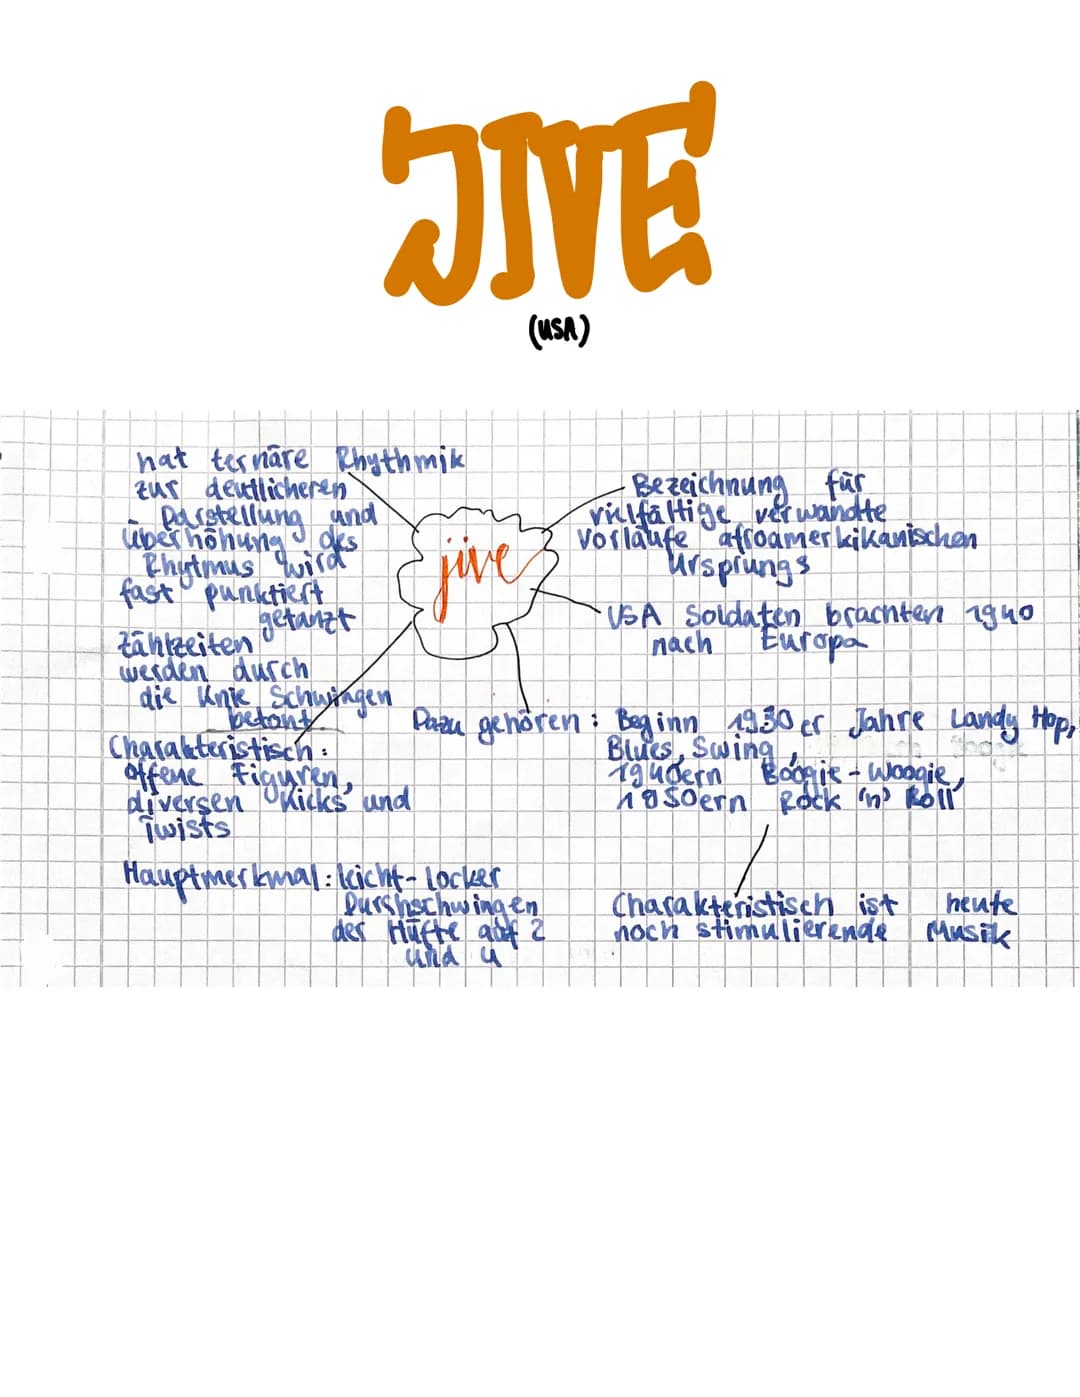 JIVE
(USA)
hat ternäre Rhythmik
zur deutlicheren
Darstellung und
überhöhung des
Rhytmus wird
fast punktiert
getanzt
Zählzeiten
werden durch
die Knie Schwingen
betont
Charakteristisch:
offene Figuren,
diversen Kicks und
Twists
Hauptmerkmal: leicht-locker
Durshschwingen
der Hüfte auf 2
und 4
jive
Bezeichnung für
vielfältige verwandte
Vorläufe afroamerkikanischen
Ursprungs
USA Soldaten brachten 1940
nach Europa
Dazu gehören: Beginn 1930er Jahre Landy Hop,
Blues, Swing,
1940ern Boogie-Woogie,
1950ern Rock 'n' Roll
Charakteristisch ist heute
noch stimulierende Musik